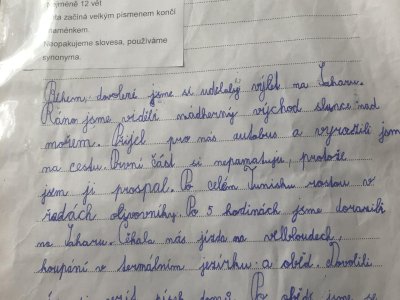 Nejméně 12 vět
ěta začíná velkým písmenem končí
aménkem.
Neopakujeme slovesa, používáme
synonyma.
Během dovolené jsme si udělaly výlet na Saharu.
Ráno jsme viděli nádherný východ slunce nad
mořem. Přijel pro nás autobus a vyrazili jsm
na cestu. První část si nepamatuju, protože
jsem ji prospal. Po celém Tunisku rostou v
řadách olyvovníky. Po 5 hodinách jsme dorazili
na Saharu. Čekala nás jízda na velbloudech,
koupání v termálním jezírku a oběd. Dovolili
písek domů. Po obědě jsme se